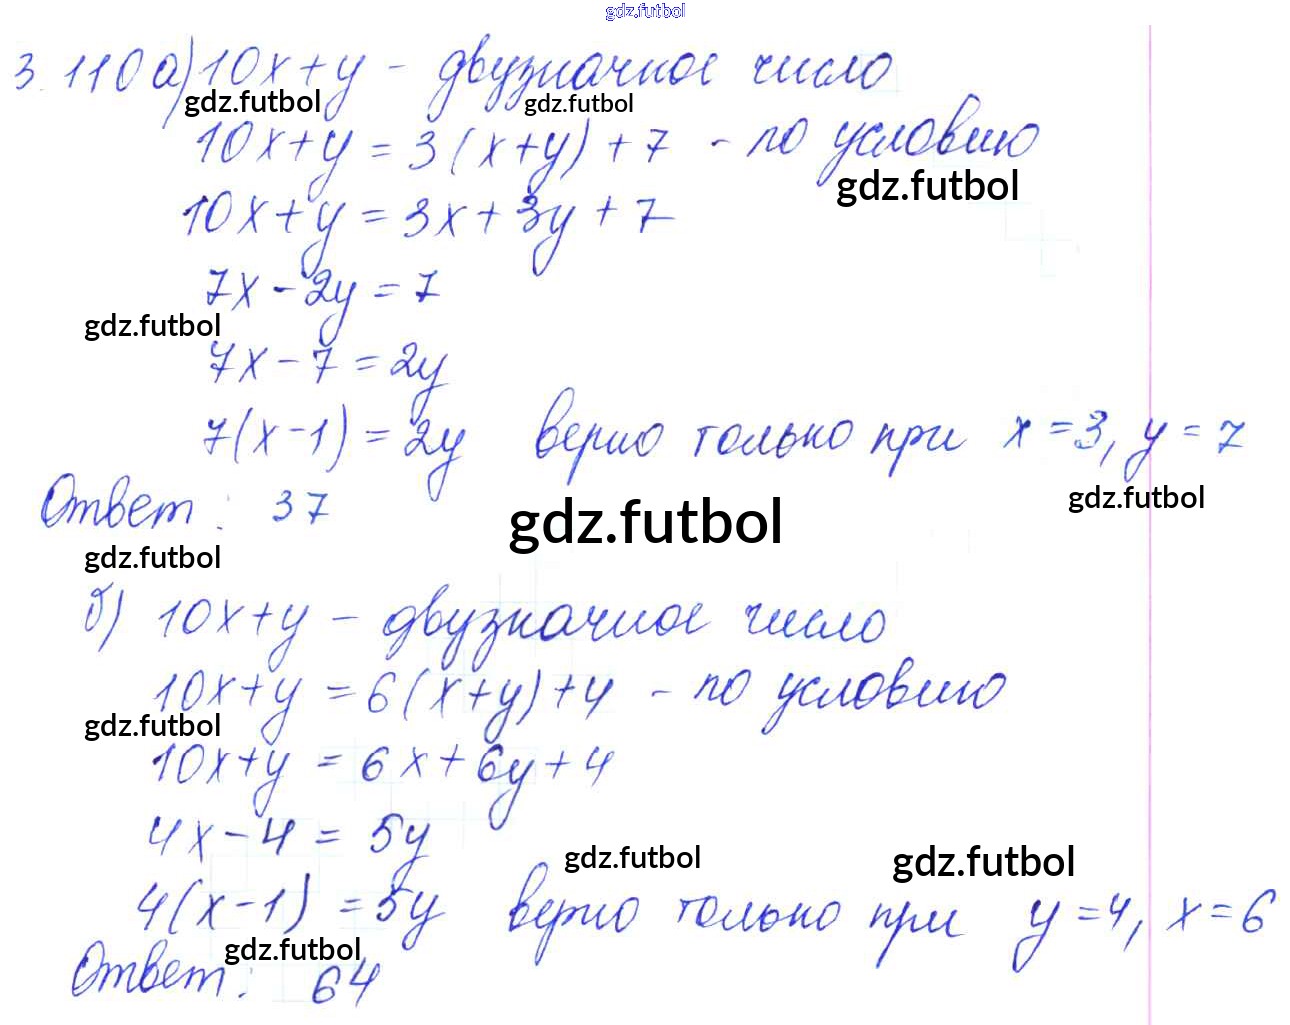 gdz.futbol
3.110 а) 10x+y - двузначное число
gdz.futbol gdz.futbol
10x+y = 3(x+y)+7 - по условию
gdz.futbol
10x+y = 3x+3y+7
7x-2y=7
gdz.futbol
7x-7=2y
7(x-1)=2y верно только при x=3, y=7
gdz.futbol
Ответ: 37
gdz.futbol
gdz.futbol
б) 10x+y - двузначное число
10x+y = 6(x+y)+4 - по условию
gdz.futbol
10x+y = 6x+6y+4
4x-4 = 5y
gdz.futbol gdz.futbol
4(x-1) = 5y верно только при y=4, x=6
gdz.futbol
Ответ: 64